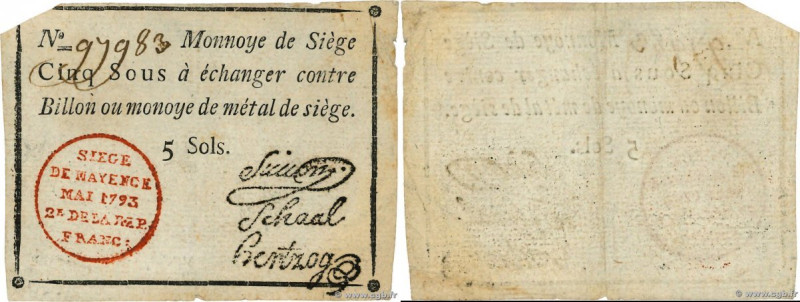 Nº 97983 Monnoye de Siège
Cinq Sous à échanger contre
Billon ou monoye de métal de siège.
5 Sols.
SIEGE
DE MAYENCE
MAI 1793
2ᴱ DE LA REP.
FRANC:
Simon
Schaal
Hentzog
© www.cgb.fr
© www.cgb.fr